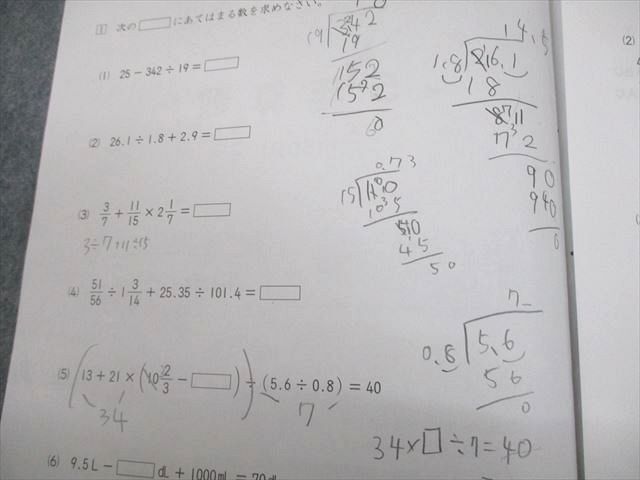 1 次の□にあてはまる数を求めなさい。
(1) 25－342÷19＝□
(2) 26.1÷1.8＋2.9＝□
(3) 3/7＋11/15×2 1/7＝□
3÷7+11÷15
(4) 51/56÷1 3/14＋25.35÷101.4＝□
(5) (13＋21×(10 2/3－□))÷(5.6÷0.8)＝40
34 7
34×□÷7=40
(6) 9.5L－□dL＋1000mL＝70dL
19 342
19
152
152
0
14.5
1.8 26.1
18
72
90
90
0
0.73
15
105
50
45
50
7
0.8 5.6
56
0
(2)